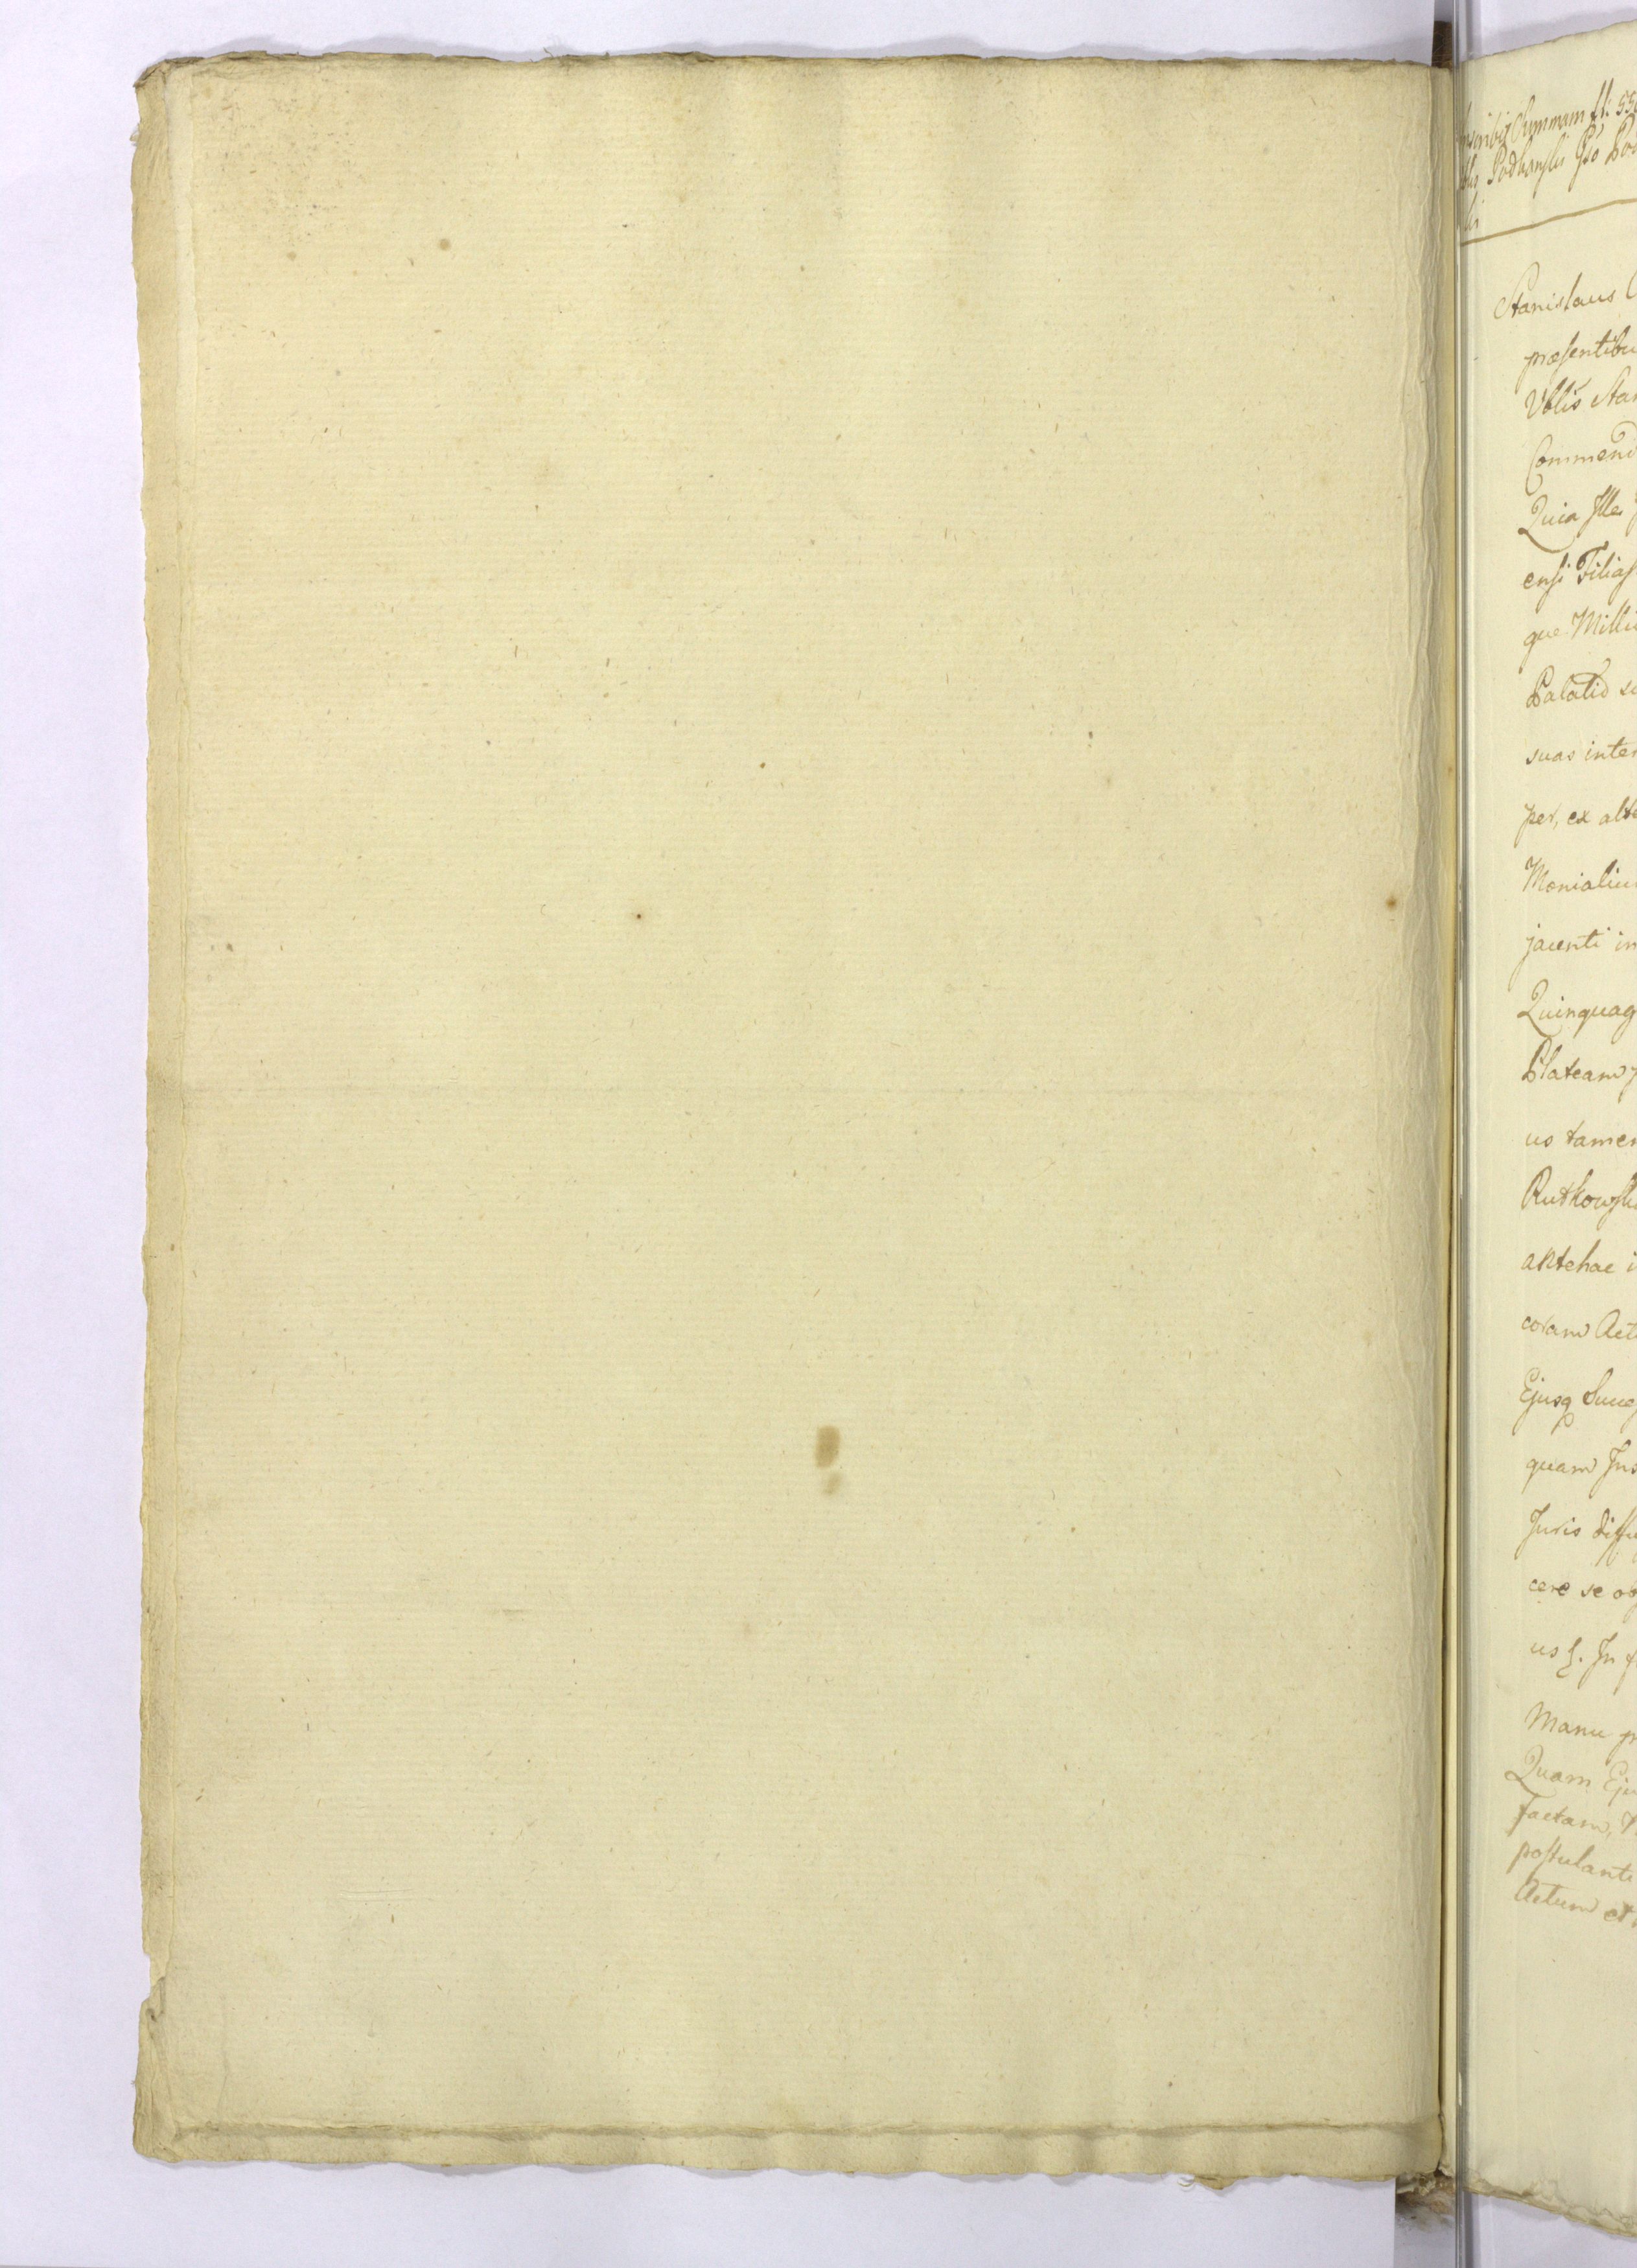 Summam fl: 55
Podhorski
Stanislaus
præsentibu
Vblis Sta
Commend
Quia Ille
ensi Filias
que Milli
Palatio su
suas inter
per, ex alte
Monialiu
jacenti in
Quinquag
Plateam
us tamen
Rutkowsk
antehac i
coram Act
Ejusq Succ
quam Ins
Juris
cere se ob
us. In f
Manu pr
Quam Eju
Factam, t
postulanti
Actum et